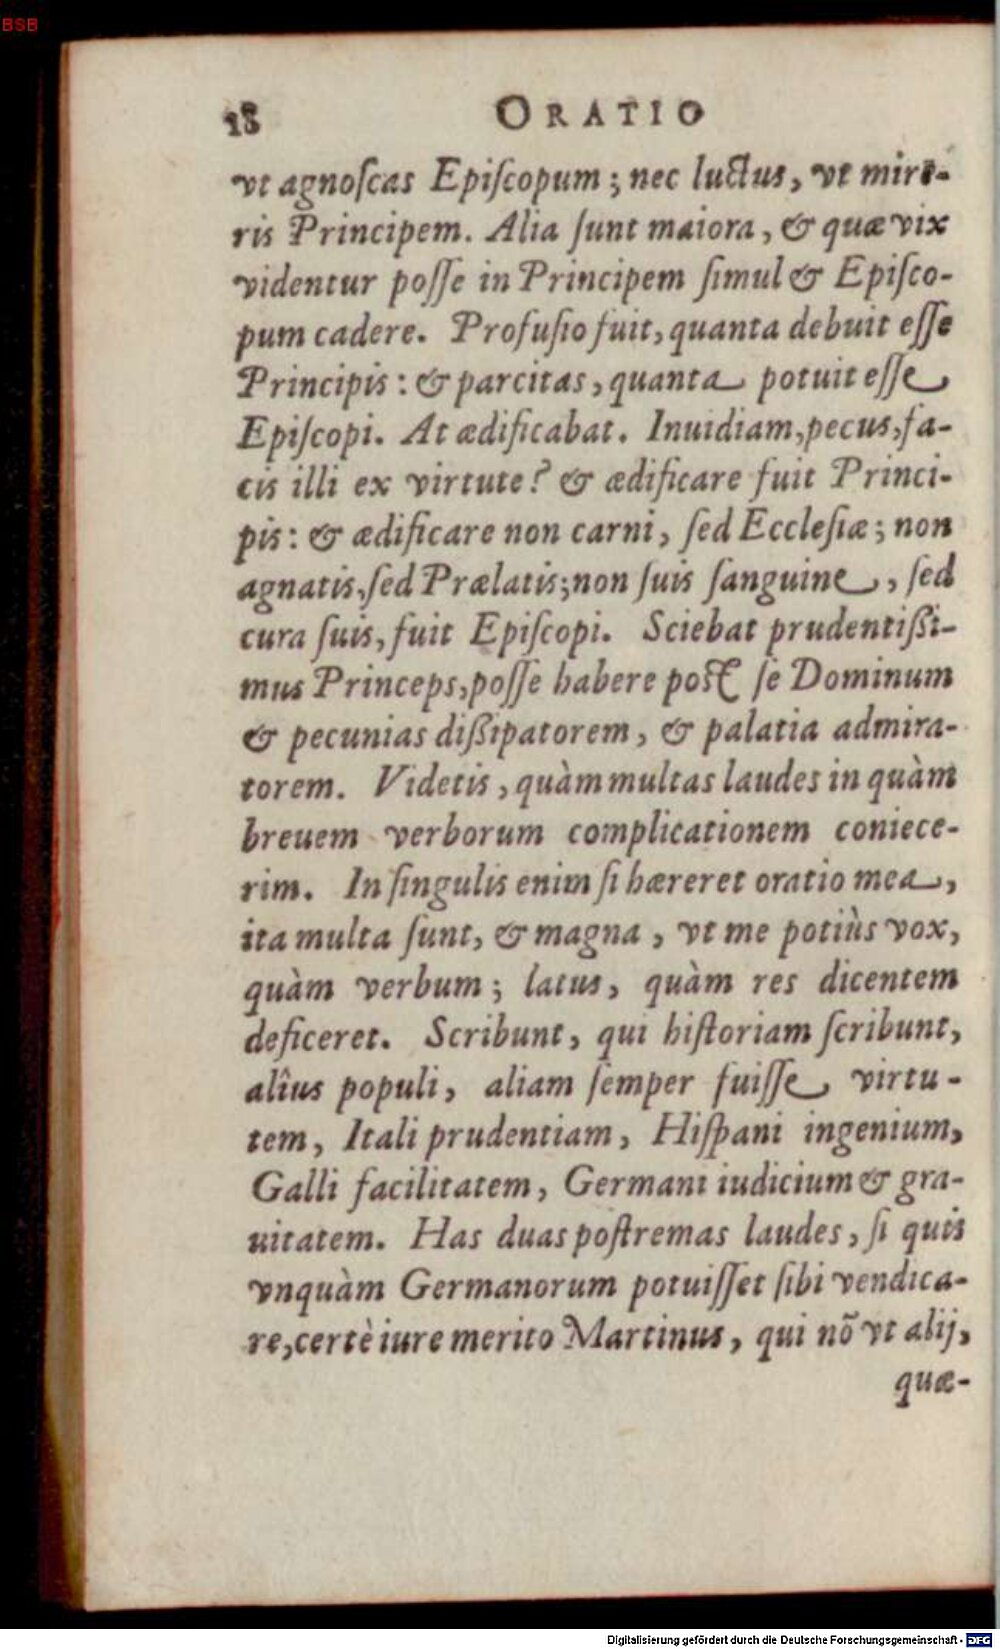 BSB
18 ORATIO
vt agnoſcas Epiſcopum; nec luctus, vt mire-
ris Principem. Alia ſunt maiora, & quæ vix
videntur poſſe in Principem ſimul & Epiſco-
pum cadere. Profuſio fuit, quanta debuit eſſe
Principis: & parcitas, quanta potuit eſſe
Epiſcopi. At ædificabat. Inuidiam, pecus, fa-
cis illi ex virtute? & ædificare fuit Princi-
pis: & ædificare non carni, ſed Eccleſiæ; non
agnatis, ſed Prælatis; non ſuis ſanguine, ſed
cura ſuis, fuit Epiſcopi. Sciebat prudentißi-
mus Princeps, poſſe habere poſt ſe Dominum
& pecunias dißipatorem, & palatia admira-
torem. Videtis, quàm multas laudes in quàm
breuem verborum complicationem coniece-
rim. In ſingulis enim ſi hæreret oratio mea,
ita multa ſunt, & magna, vt me potiùs vox,
quàm verbum; latus, quàm res dicentem
deficeret. Scribunt, qui hiſtoriam ſcribunt,
alîus populi, aliam ſemper fuiſſe virtu-
tem, Itali prudentiam, Hiſpani ingenium,
Galli facilitatem, Germani iudicium & gra-
uitatem. Has duas poſtremas laudes, ſi quis
vnquàm Germanorum potuiſſet ſibi vendica-
re, certè iure merito Martinus, qui nõ vt alij,
quæ-
Digitalisierung gefördert durch die Deutsche Forschungsgemeinschaft - DFG